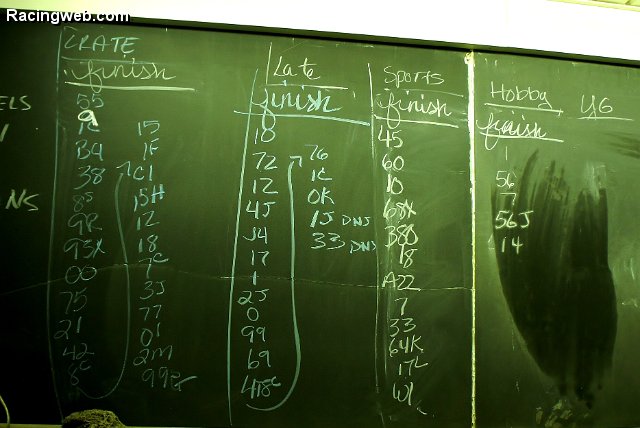 Racingweb.com
CRATE
finish
55
9
1C
B4
38
8S
9R
93X
00
75
21
42
8C
15
1F
C1
15H
12
18
7C
3J
77
01
2M
99
Late
finish
18
72
12
4J
J4
17
1
2J
0
99
69
418C
76
1C
OK
1J DNS
33 DNS
Sports
finish
45
60
10
68X
380
18
A22
7
33
64K
17L
W1
Hobby
finish
1
56
7
56J
14
YG
ELS
NS